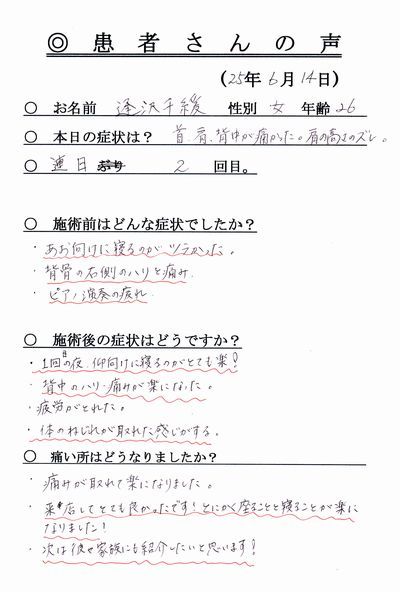 ◎患者さんの声
(25年6月14日)
○ お名前 逢沢千綾 性別 女 年齢 26
○ 本日の症状は? 首、肩、背中が痛かった。肩の高さのズレ。
○ 連日 ぶり 2 回目。
○ 施術前はどんな症状でしたか?
・あお向けに寝るのがツラかった。
・背骨の右側のハリと痛み
・ピアノ演奏の疲れ
○ 施術後の症状はどうですか?
・1回目の夜、仰向けに寝るのがとても楽!
・背中のハリ・痛みが楽になった。
・疲労がとれた。
・体のねじれが取れた感じがする。
○ 痛い所はどうなりましたか?
・痛みが取れて楽になりました。
・来店してとても良かったです!とにかく座ることと寝ることが楽に
なりました!
・次は彼や家族にも紹介したいと思います!